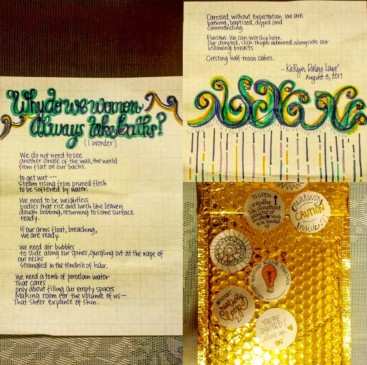 Why do we women
always take baths?
(I wonder)
We do not need to see
another angle of the wall, the world
from flat on our backs.
to get wet—
steam rising from pruned flesh
to be softened by water.
We need to be weightless
bodies that rise and lurch like leaven,
dough bobbing, returning to some surface
ready.
If our arms float, breaching,
we are ready.
We need air bubbles
to slide along our spines, gurgling out at the nape of
our necks
strangled in the tendrils of hair.
We need a tomb of porcelain water
that cares
only about filling our empty spaces
making room for the volume of us—
that sheer expanse of skin.
Caressed without expectation, we are
bathing, baptized, dipped and
commending.
Furious. We can worship here.
Our dimpled, thick thighs admired alongside our
blooming breasts
Cresting half-moon cakes.
August 8, 2017
CAUTION
YOU'RE